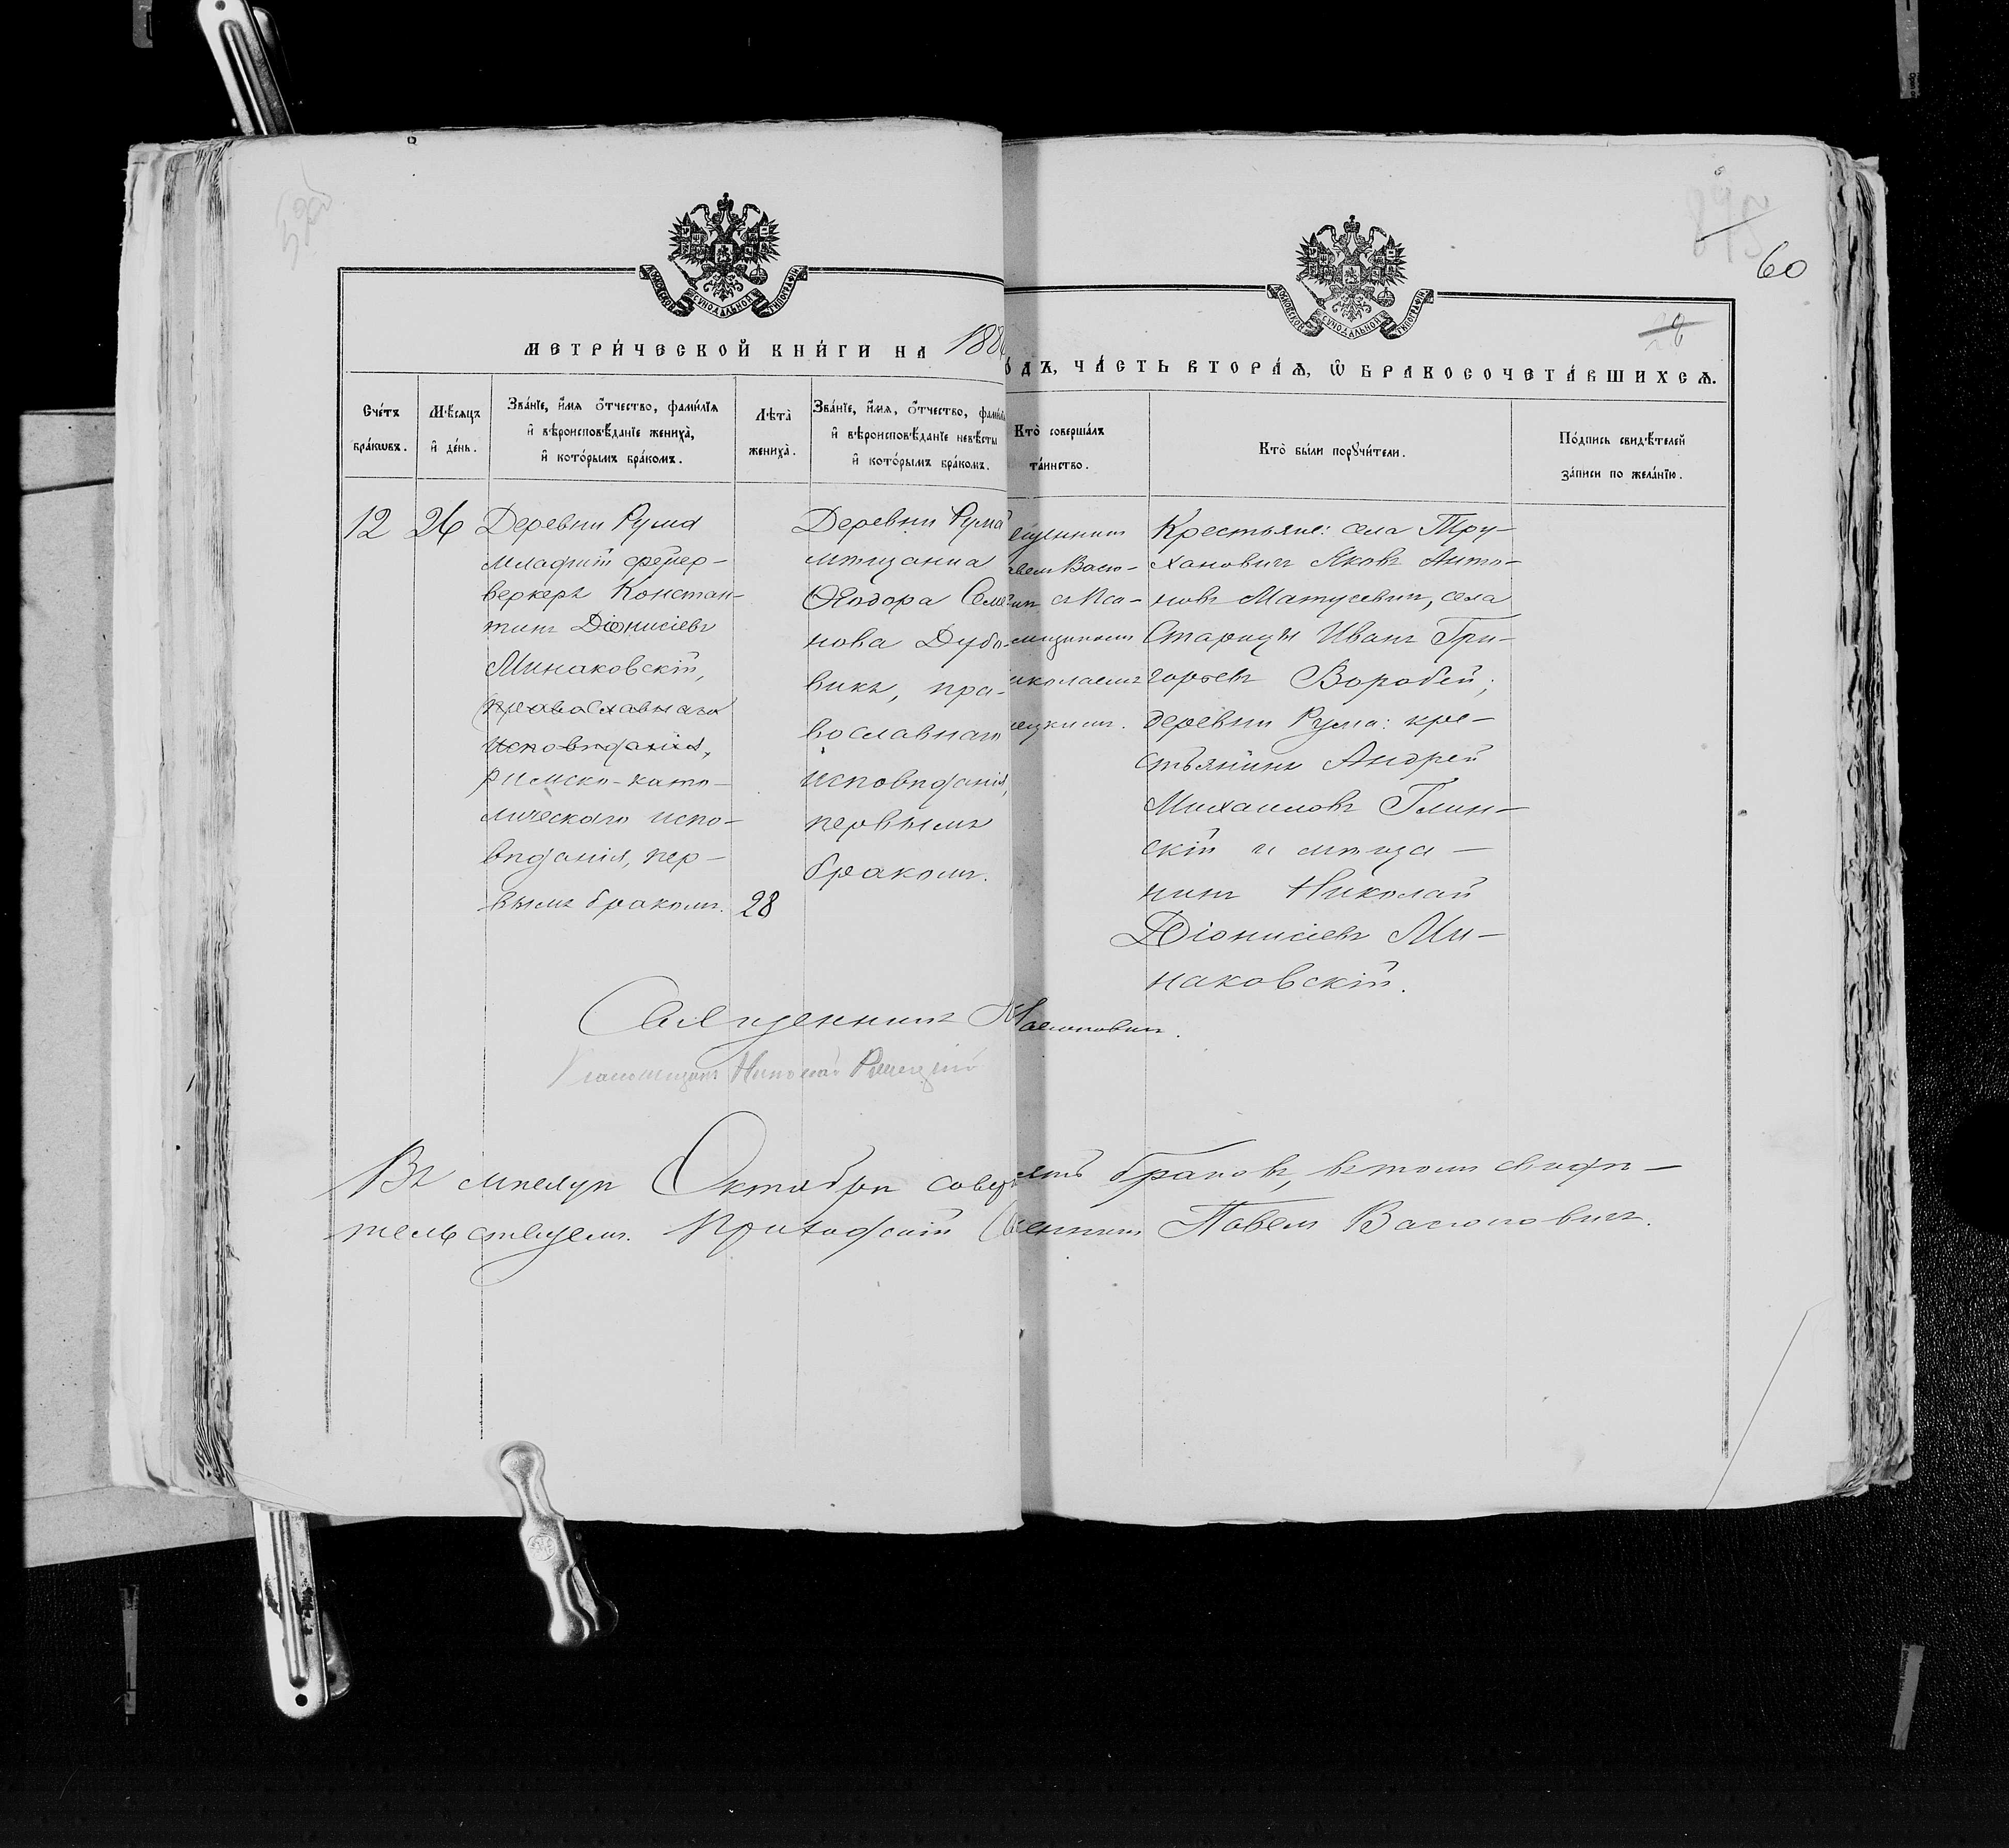 895
60
МЕТРИ́ЧЕСКОЙ КНИ́ГИ НА 188
О́ДЪ, ЧА́СТЬ ВТОРА́Ѧ, Ѡ҆ БРАКОСОЧЕТА́ВШИХСѦ.
Сче́тъ бра́кѡвъ.
Мѣ́сяцъ и҆ де́нь.
Зва́нїе, и҆́мя ѻ҆́тчество, фами́лїя и҆ вѣроисповѣ́данїе жениха̀, и҆ кото́рымъ бра́комъ.
Лѣта̀ жениха̀.
Зва́нїе, и҆́мя, ѻ҆́тчество, фами́л и҆ вѣроисповѣ́данїе невѣ́сты и҆ кото́рымъ бра́комъ.
Кто̀ соверша́лъ та́инство.
Кто̀ бы́ли порꙋчи́тели.
По́дпись свидѣ́телей за́писи по жела́нїю.
12
26
Деревни Рума
младшій фейер-
веркеръ Констан-
тинъ Діонисіевъ
Минаковскій,
православнаго
исповѣданія,
римско-като-
лическаго испо-
вѣданія, пер-
вымъ бракомъ.
28
Деревни Рума
мѣщанка
Ѳеодора Семе
нова Дубо-
викъ, пра-
вославнаго
исповѣданія,
первымъ
бракомъ.
щенникъ
авелъ Васю-
съ Пса-
мщикомъ
иколаемъ
ецкимъ.
Крестьяне: села Тру-
хановичъ Яковъ Анто-
новъ Матусевичъ, села
Старицы Иванъ Гри-
горьевъ Воробей;
деревни Рума: кре-
стьянинъ Андрей
Михаиловъ Глин-
скій и мѣща-
нинъ Николай
Діонисіевъ Ми-
наковскій.
Священникъ Васюковичъ.
Псаломщикъ Николай
Въ мѣсяцѣ Октябрѣ совер браковъ, въ томъ свидѣ-
тельствуемъ. Приходскій Священникъ Павелъ Васюковичъ.